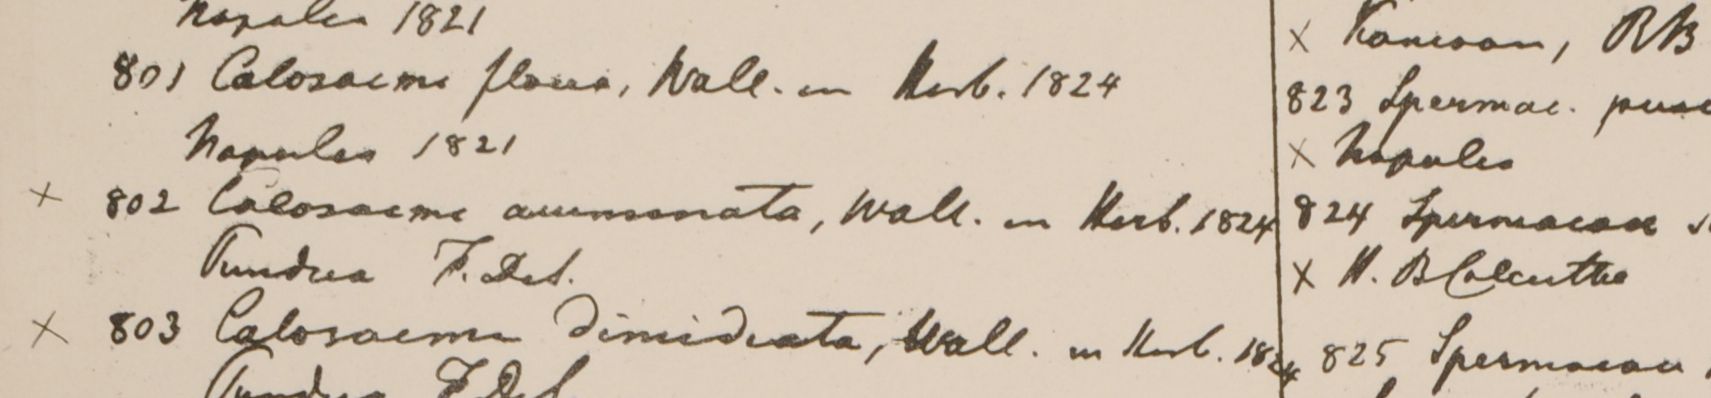 Napalia 1821
801 Calosacme flava, Wall. in Herb. 1824
Napalia 1821
× 802 Calosacme acuminata, Wall. in Herb. 1824
Pundua F. De S.
× 803 Calosacme dimidiata, Wall. in Herb. 1824
Pundua F. De S.
× RB
823 Spermac.
× Napalia
824 Spermacoce
× H. B Calcutta
825 Spermacoce